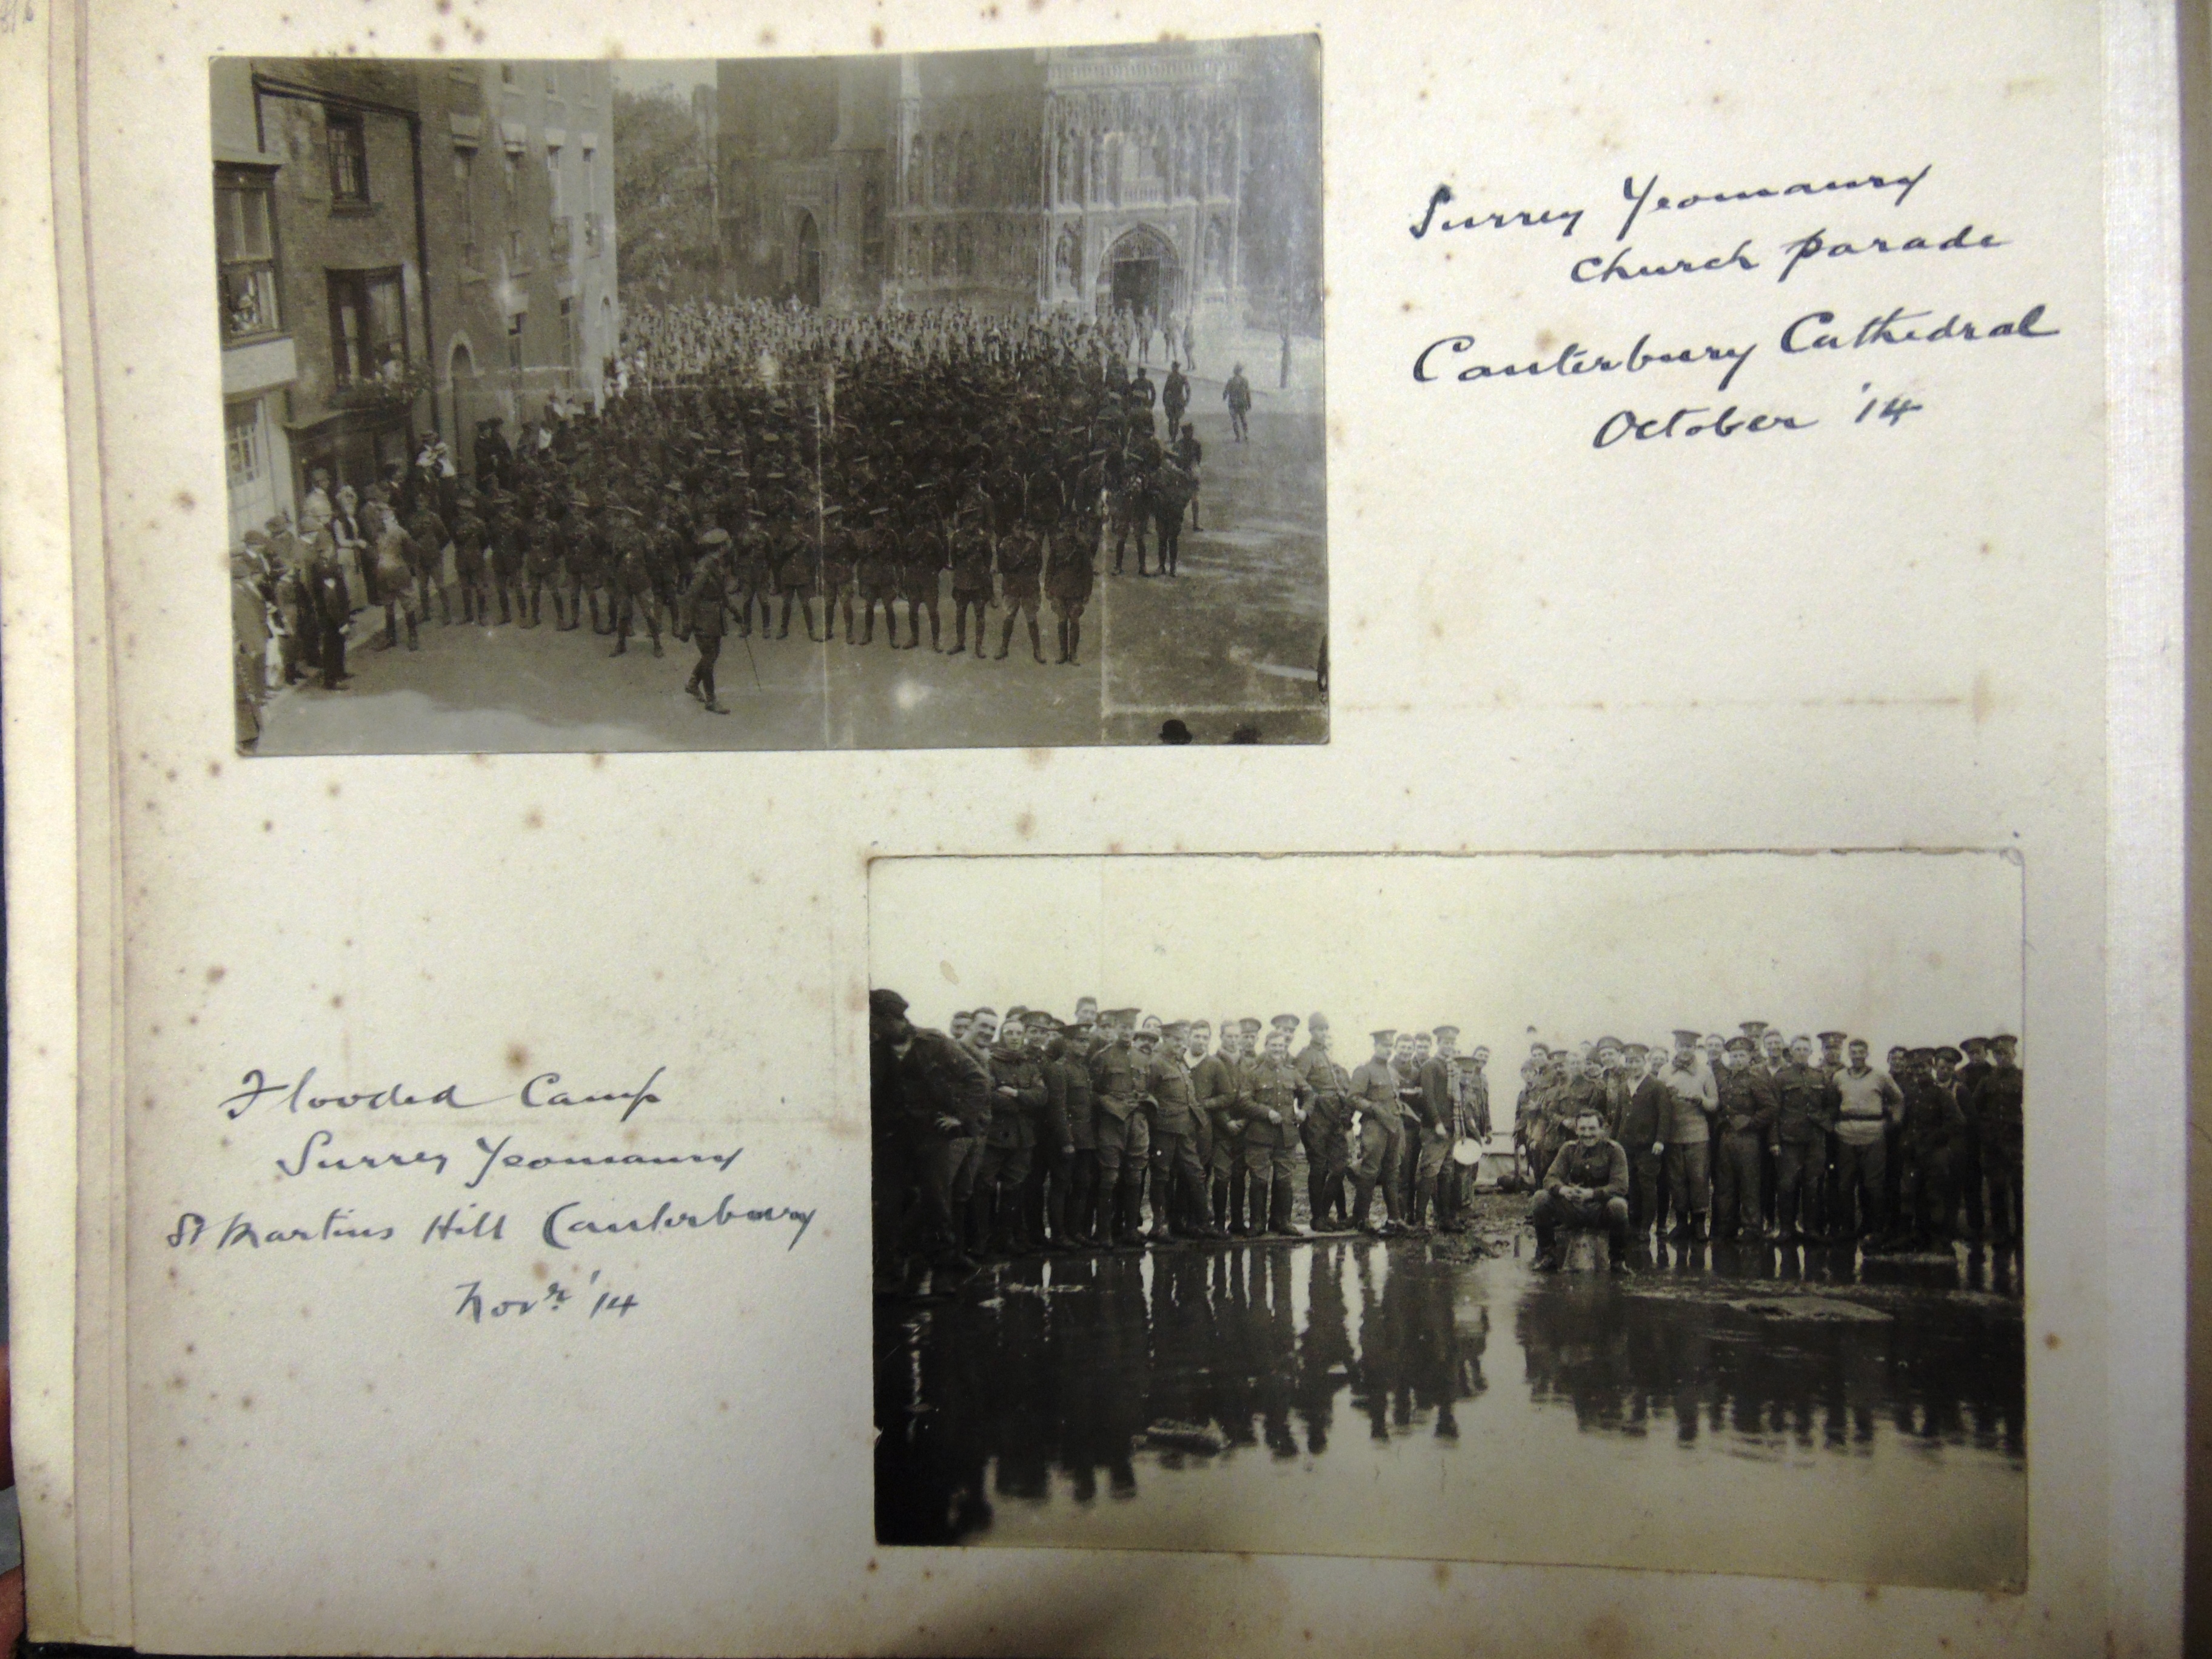 Surrey Yeomanry
Church parade
Canterbury Cathedral
October '14
Flooded Camp
Surrey Yeomanry
St Martins Hill Canterbury
Novr '14